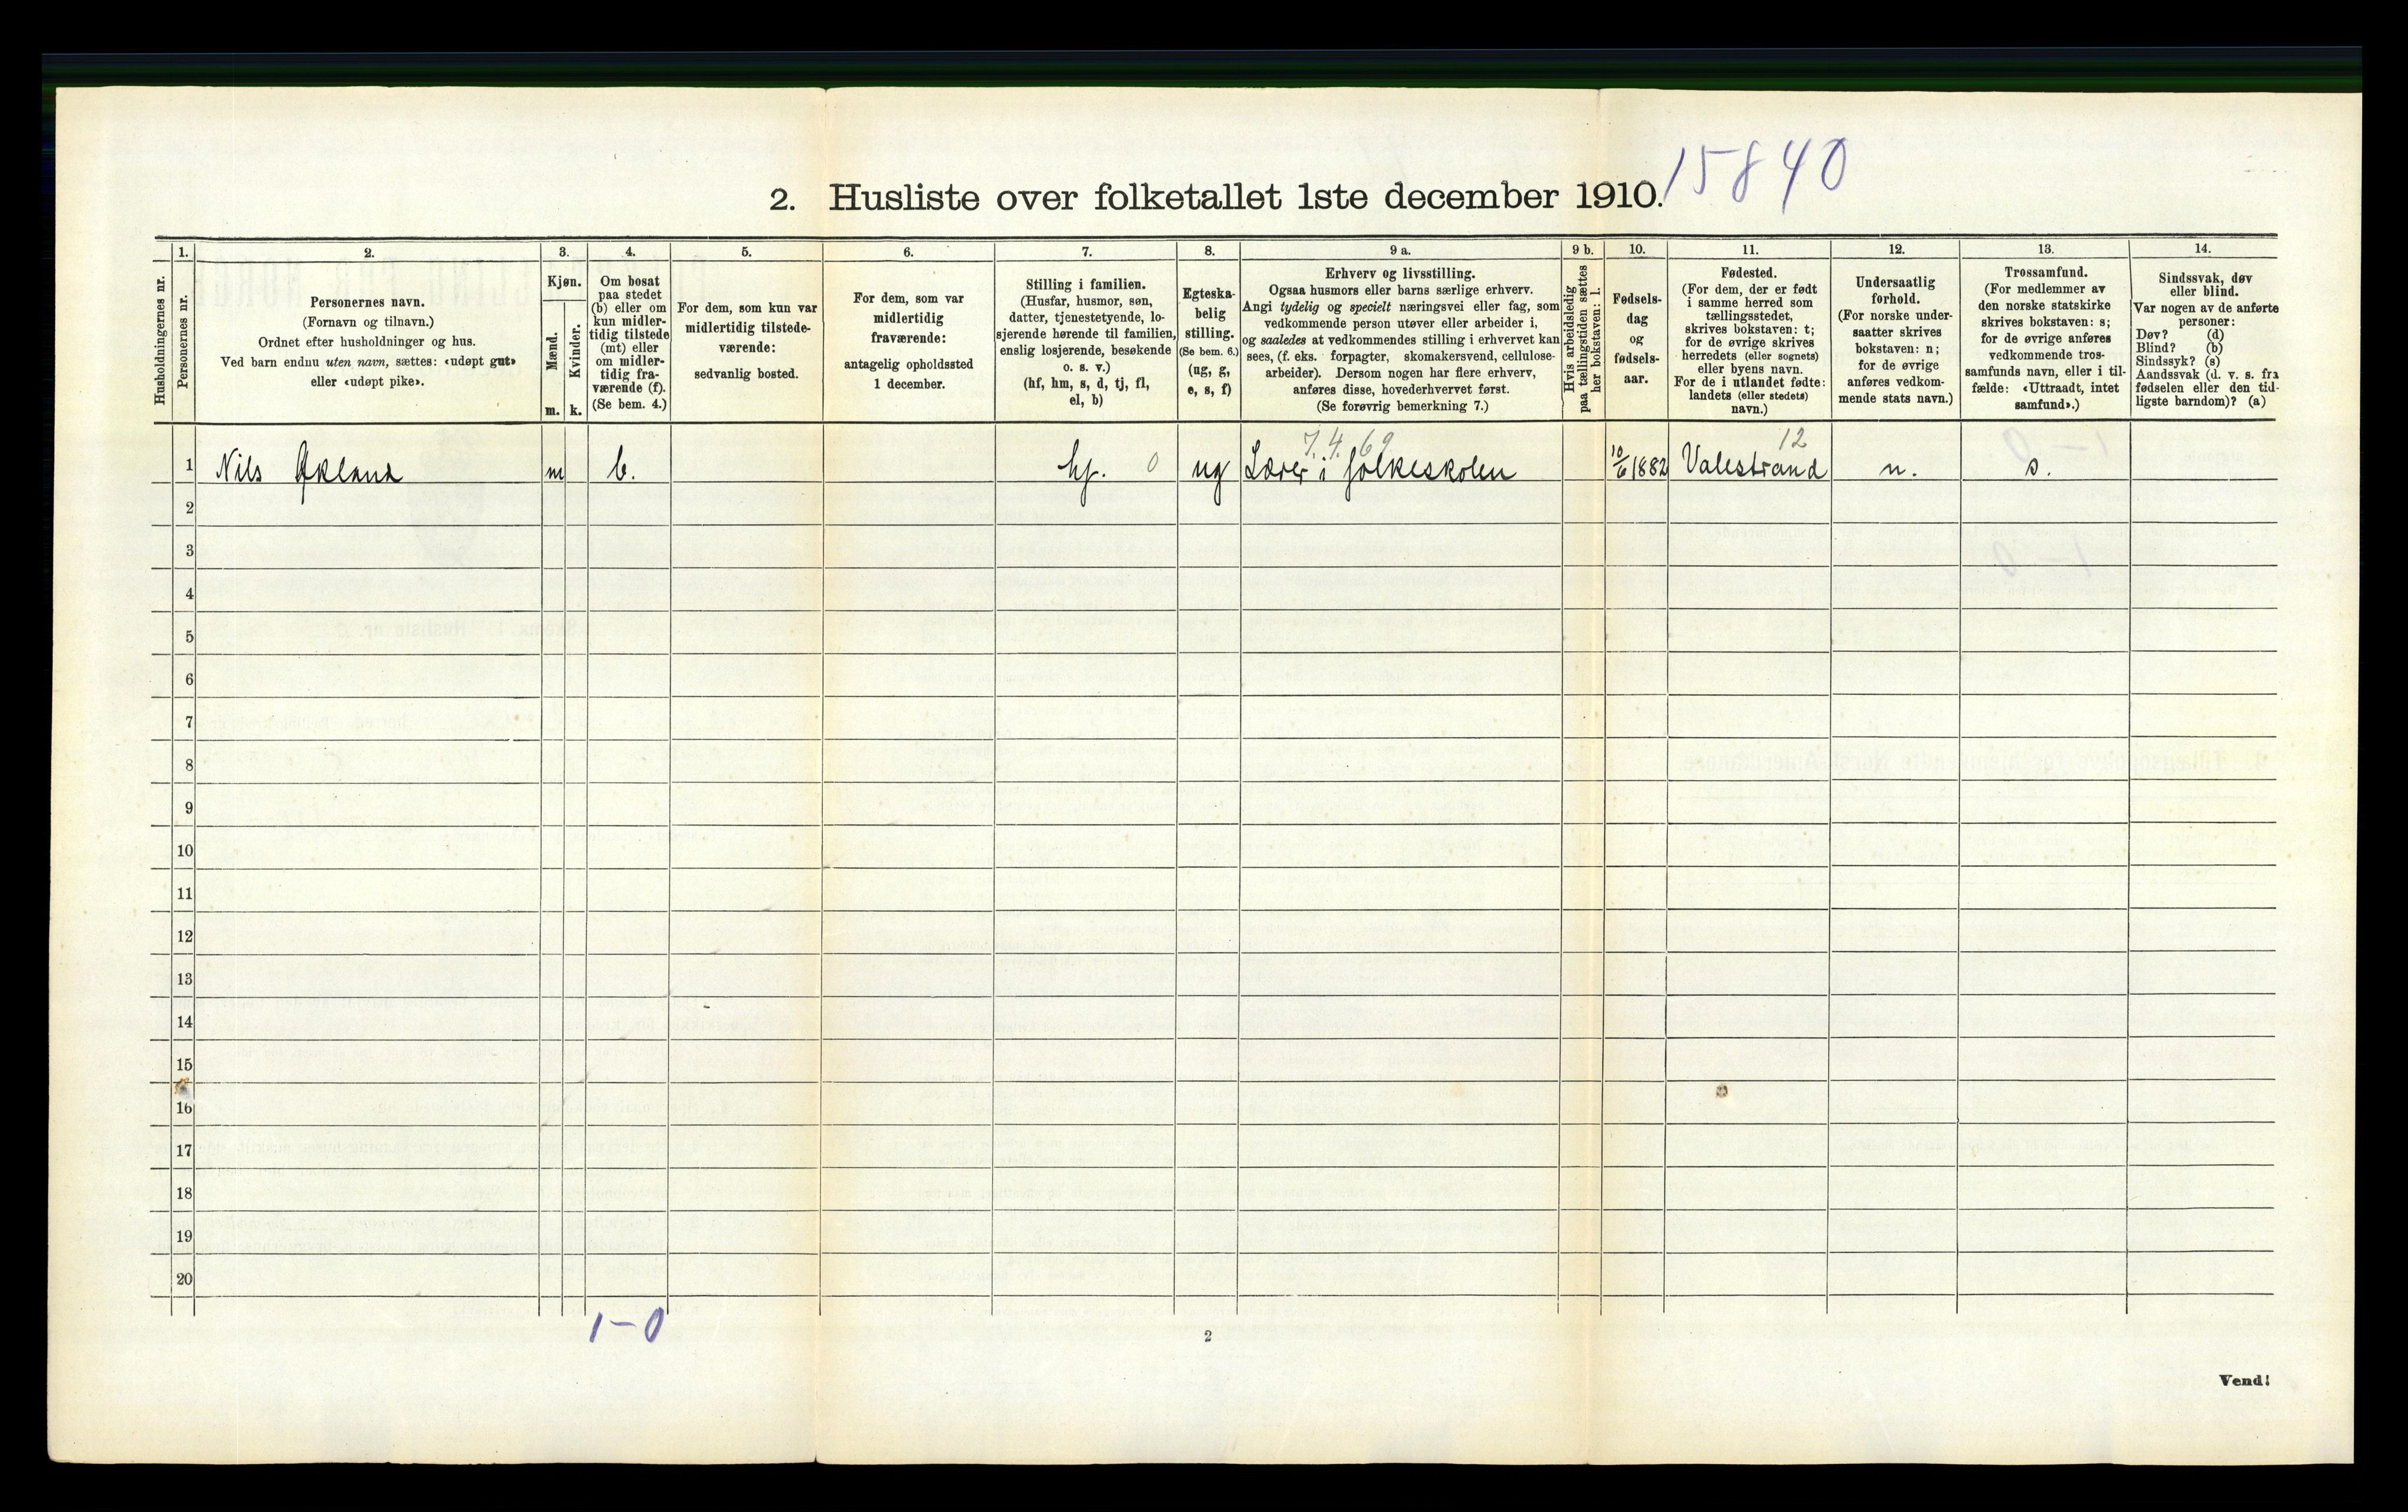 15840
2. Husliste over folketallet 1ste december 1910.
Husholdningernes nr.
1.
Personernes nr.
2.
Personernes navn.
(Fornavn og tilnavn.)
Ordnet efter husholdninger og hus.
Ved barn endnu uten navn, sættes: «udøpt gut»
eller «udøpt pike».
3.
Kjøn.
Mænd.
Kvinder.
m. k.
4.
Om bosat
paa stedet
(b) eller om
kun midler-
tidig tilstede
(mt) eller
om midler-
tidig fra-
værende (f).
(Se bem. 4.)
5.
For dem, som kun var
midlertidig tilstede-
værende:
sedvanlig bosted.
6.
For dem, som var
midlertidig
fraværende:
antagelig opholdssted
1 december.
7.
Stilling i familien.
(Husfar, husmor, søn,
datter, tjenestetyende, lo-
sjerende hørende til familien,
enslig losjerende, besøkende
o. s. v.)
(hf, hm, s, d, tj, fl,
el, b)
8.
Egteska-
belig
stilling.
(Se bem. 6.)
(ug, g,
e, s, f)
9 a.
Erhverv og livsstilling.
Ogsaa husmors eller barns særlige erhverv.
Angi tydelig og specielt næringsvei eller fag, som
vedkommende person utøver eller arbeider i,
og saaledes at vedkommendes stilling i erhvervet kan
sees, (f. eks. forpagter, skomakersvend, cellulose-
arbeider). Dersom nogen har flere erhverv,
anføres disse, hovederhvervet først.
(Se forøvrig bemerkning 7.)
9 b.
Hvis arbeidsledig
paa tællingstiden sættes
her bokstaven: l.
10.
Fødsels-
dag
og
fødsels-
aar.
11.
Fødested.
(For dem, der er født
i samme herred som
tællingsstedet,
skrives bokstaven: t;
for de øvrige skrives
herredets (eller sognets)
eller byens navn.
For de i utlandet fødte:
landets (eller stedets)
navn.)
12.
Undersaatlig
forhold.
(For norske under-
saatter skrives
bokstaven: n;
for de øvrige
anføres vedkom-
mende stats navn.)
13.
Trossamfund.
(For medlemmer av
den norske statskirke
skrives bokstaven: s;
for de øvrige anføres
vedkommende tros-
samfunds navn, eller i til-
fælde: «Uttraadt, intet
samfund».)
14.
Sindssvak, døv
eller blind.
Var nogen av de anførte
personer:
Døv? (d)
Blind? (b)
Sindssyk? (s)
Aandssvak (d. v. s. fra
fødselen eller den tid-
ligste barndom)? (a)
7.4.69. 12
1 Nils Økland m b. hf. 0 ug Lærer i folkeskolen 10/6 1882 Valestrand n. s.
2
3
4
5
6
7
8
9
10
11
12
13
14
15
16
17
18
19
20
1-0
2
Vend!